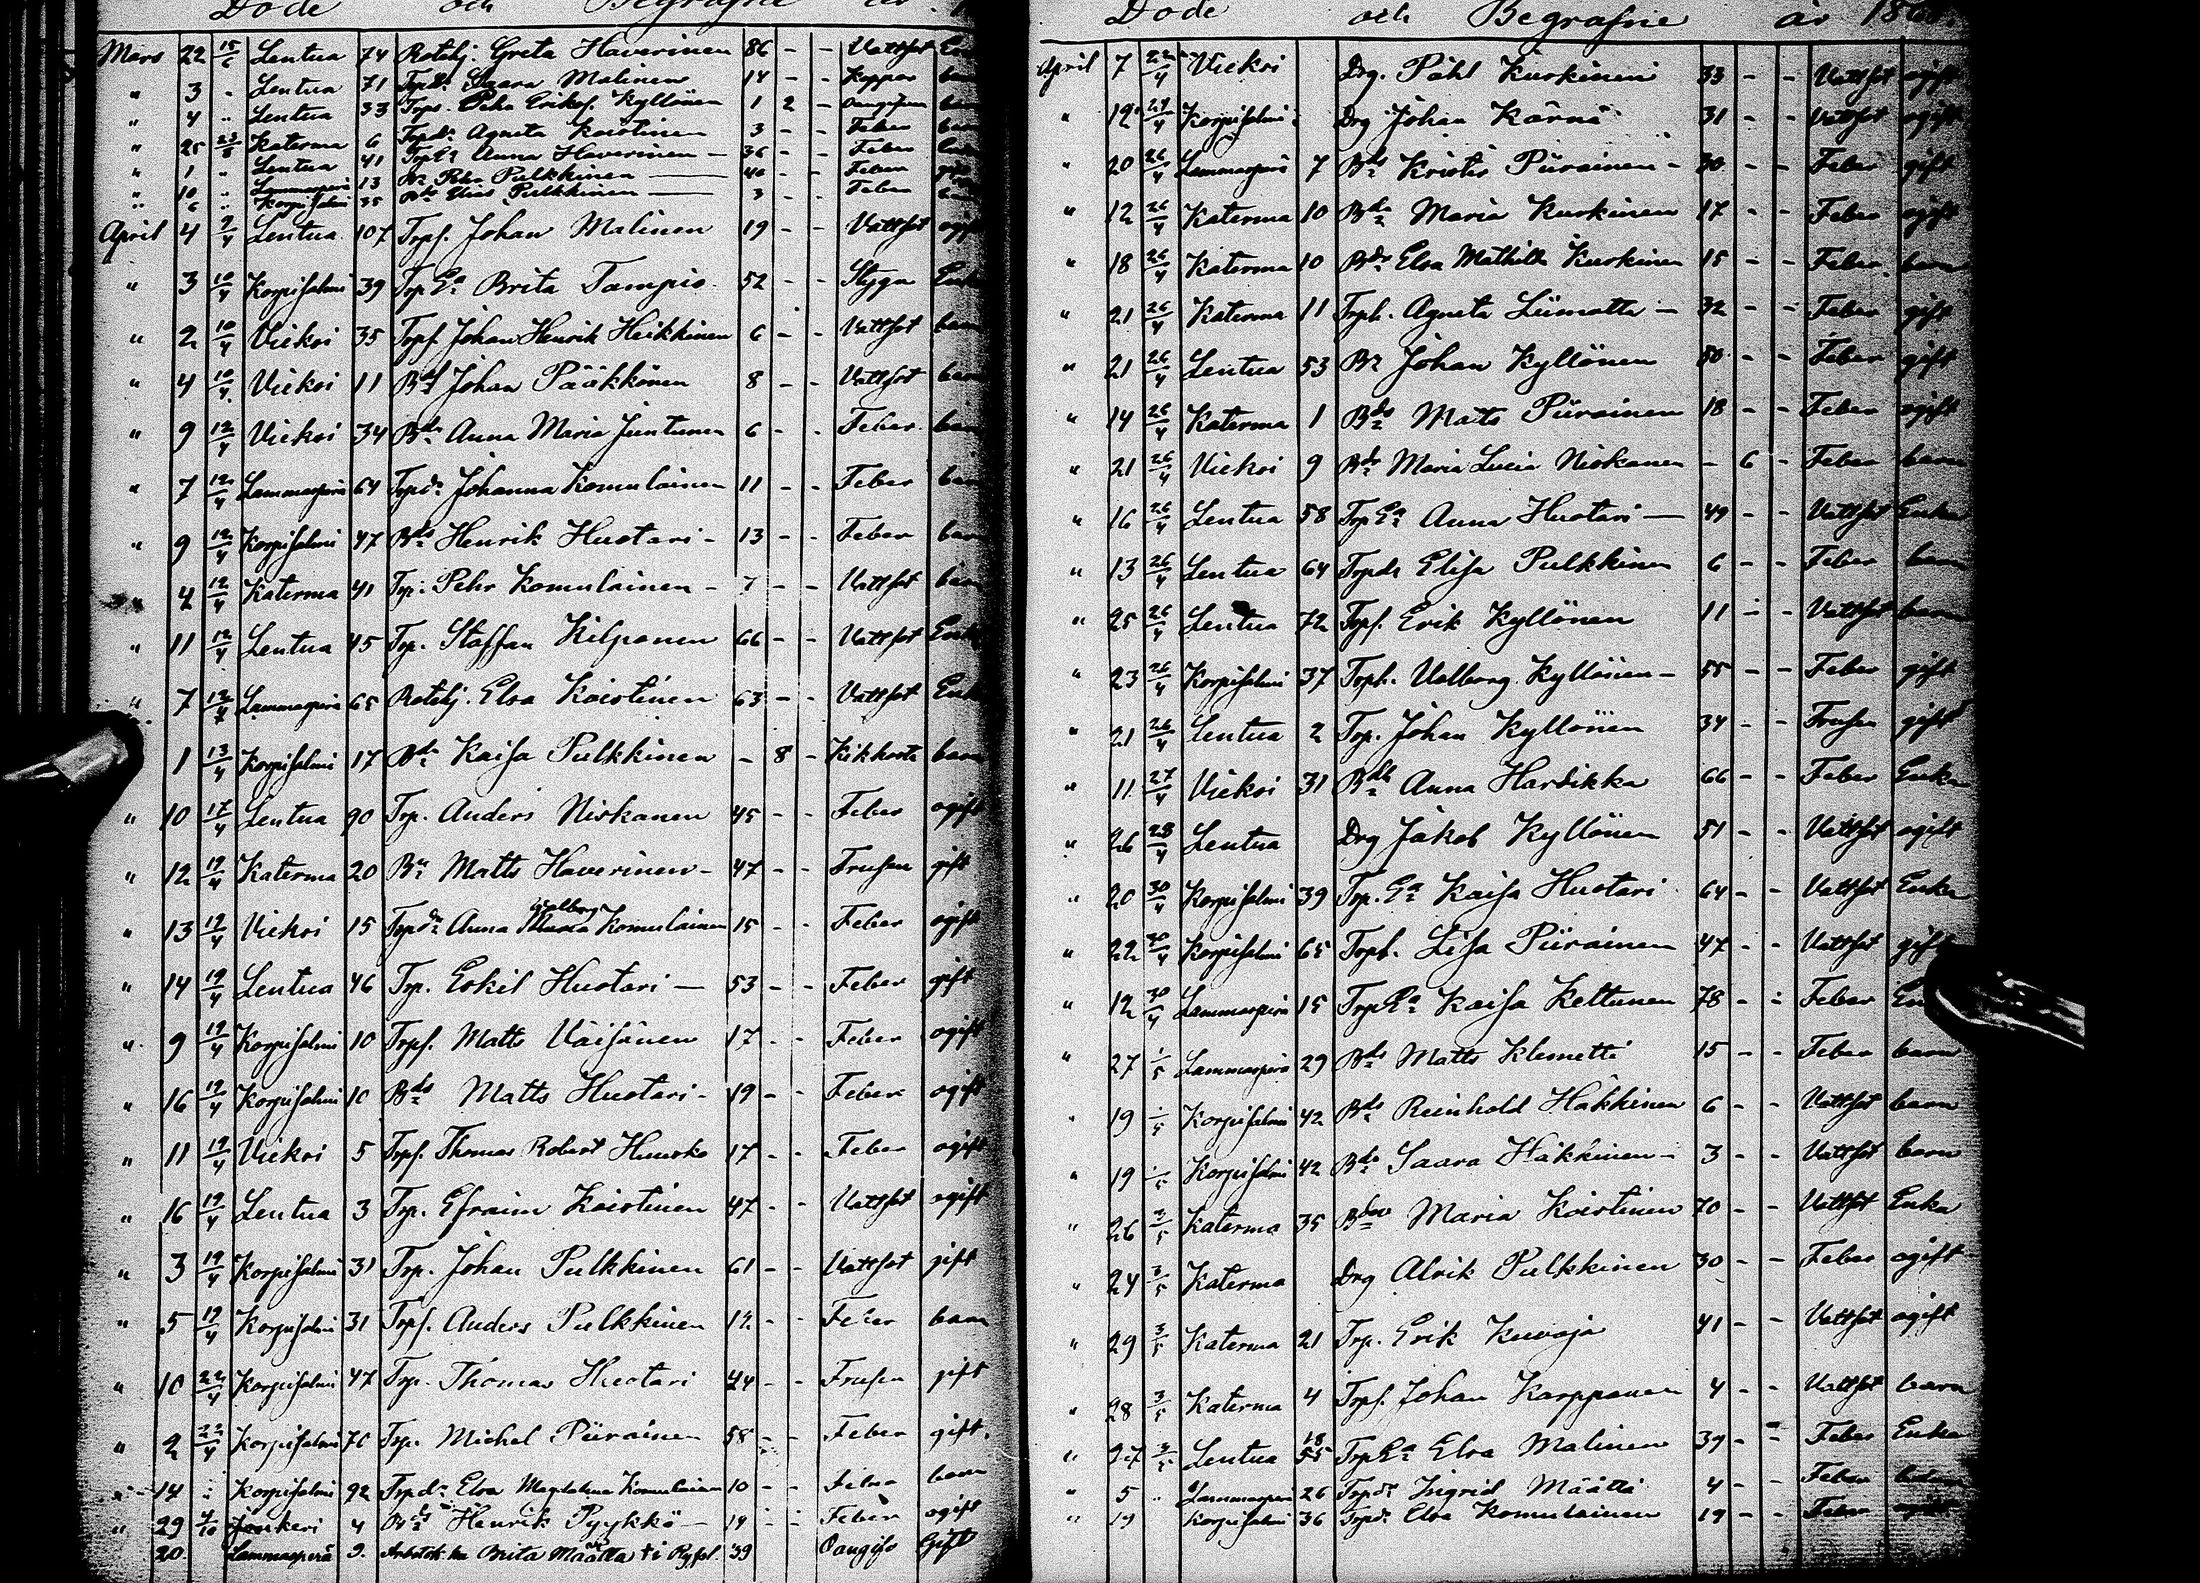 Döde och Begrafne år
Mars 22 15/6 Lentua 74 Rotehj. Greta Haverinen 86 - - Vattsot
" 3 " Lentua 71 Trpdr Saara Malinen 14 - - Koppor barn
" 4 " Lentua 33 Trps. Pehr Eriks. Kyllönen 1 2 - barn
" 25 Katerma 6 Trpdr Agneta Koistinen 3 - - Feber barn
" 1 " Lentua 41 Anna Haverinen - 36 - - Feber
" 10 " Lammasperä 13 Pehr Pulkkinen 40 - - Feber gift
" 6 " Korpisalmi 35 Pulkkinen 3 - - Feber barn
April 4 9/4 Lentua 107 Trps. Johan Malinen 19 - - Vattsot ogift
" 3 10/4 Korpisalmi 39 Trp Ea Brita Tampio 52 - - Stygn Enka
" 2 10/4 Vieksi 35 Trps Johan Henrik Heikkinen 6 - - Vattsot barn
" 4 10/4 Vieksi 11 Bds Johan Pääkkönen 8 - - Vattsot barn
" 9 12/4 Vieksi 34 Bdr Anna Maria Juntunen 6 - - Feber barn
" 7 12/4 Lammasperä 64 Trpdr Johanna Komulainen 11 - - Feber barn
" 9 12/4 Korpisalmi 47 Bds Henrik Huotari - 13 - - Feber barn
" 4 12/4 Katerma 41 Trp. Pehr Komulainen - 7 - - Vattsot barn
" 11 12/4 Lentua 45 Trp. Staffan Kilponen 66 - - Vattsot Enkl
" 7 12/4 Lammasperä 65 Rotehj. Elsa Koistinen 63 - - Vattsot Enka
" 1 13/4 Korpisalmi 17 Bdr Kaisa Pulkkinen - 8 - Kikhosta barn
" 10 17/4 Lentua 90 Trp. Anders Niskanen 45 - - Feber ogift
" 12 19/4 Katerma 20 Bn Matts Haverinen - 47 - - Frusen gift
" 13 19/4 Vieksi 15 Trpdr Anna Walborg Komulainen 15 - - Feber ogift
" 14 19/4 Lentua 46 Trp. Eskil Huotari - 53 - - Feber gift
" 9 19/4 Korpisalmi 10 Trps. Matts Väisänen 17 - - Feber ogift
" 16 19/4 Korpisalmi 10 Bds Matts Huotari - 19 - - Feber ogift
" 11 19/4 Vieksi 5 Trps. Thomas Robert Huusko 17 - - Feber ogift
" 16 19/4 Lentua 3 Trp. Efraim Koistinen 47 - - Vattsot ogift
" 3 19/4 Korpisalmi 31 Trp. Johan Pulkkinen 61 - - Vattsot gift
" 5 19/4 Korpisalmi 31 Trps. Anders Pulkkinen 12 - - Feber barn
" 10 22/4 Korpisalmi 47 Trp. Thomas Huotari 44 - - Frusen gift
" 2 22/4 Korpisalmi 70 Trp. Michel Piirainen 58 - - Feber gift.
" 14 Korpisalmi 92 Trpdr Elsa Magdalena Komulainen 10 - - Feber barn
" 29 4/10 Jonkeri 4 Bds Henrik Pyykkö - 19 - - Feber ogift
20. Lammasperä 9. Brita Määttä 39 Gift
Döde och Begrafne år 186
April 7 22/4 Vieksi Drg. Påhl Kurkinen 33 - - Vattsot ogift
" 12 24/4 Korpisalmi Drg Johan Kärnä 31 - - Vattsot ogift
" 20 26/4 Lammasperä 7 Kristi Piirainen - 30 - - Feber gift
" 12 26/4 Katerma 10 Bdr Maria Kurkinen 17 - - Feber ogift
" 18 26/4 Katerma 10 Bdr Elsa Mathilda Kurkinen 15 - - Feber barn
" 21 26/4 Katerma 11 Trph. Agneta Liimatta - 32 - - Feber gift
" 21 26/4 Lentua 53 Bn Johan Kyllönen 50 - - Feber gift
" 14 26/4 Katerma 1 Bds Mats Piirainen 18 - - Feber ogift
" 21 26/4 Vieksi 9 Bdr Maria Lucia Niskanen - 6 - Feber barn
" 16 26/4 Lentua 58 Trp Ea Anna Huotari - 49 - - Vattsot Enka
" 13 26/4 Lentua 64 Trpdr Elisa Pulkkinen 6 - - Feber barn
" 25 26/4 Lentua 72 Trps. Erik Kyllönen 11 - - Vattsot barn
" 23 26/4 Korpisalmi 37 Trph. Valborg Kyllönen - 55 - - Feber gift
" 21 26/4 Lentua 2 Trp. Johan Kyllönen 34 - - Frusen gift
" 11 27/4 Vieksi 31 Anna Hardikka 66 - - Feber Enka
" 26 28/4 Lentua Drg Jakob Kyllönen 51 - - Vattsot ogift
" 20 30/4 Korpisalmi 39 Trp. Ea Kaisa Huotari 64 - - Vattsot Enka
" 22 30/4 Korpisalmi 65 Trph. Lisa Piirainen 47 - - Vattsot gift
" 12 30/4 Lammasperä 15 Trp Ea Kaisa Keltunen 78 - - Feber
" 27 1/5 Lammasperä 29 Bds Matts Klemetti 15 - - Feber barn
" 19 1/5 Korpisalmi 42 Bds Reinhold Häkkinen 6 - - Vattsot barn
" 19 1/5 Korpisalmi 42 Bdr Saara Häkkinen - 3 - - Vattsot barn
" 26 3/5 Katerma 35 Maria Koistinen 70 - - Vattsot Enka
" 24 3/5 Katerma Drg Alrik Pulkkinen 30 - - Feber ogift
" 29 3/5 Katerma 21 Trp. Erik Kuvaja 41 - - Vattsot ogift
" 28 3/5 Katerma 4 Trps. Johan Karppanen 4 - - Vattsot barn
" 27 3/5 Lentua 18 55 Trp Ea Elsa Malinen 39 - - Feber Enka
" 5 " Lammasperä 26 Trpdr Ingrid Määttä 4 - - Feber barn
" 19 Korpisalmi 36 Trpdr Elsa Komulainen 19 - - Feber ogift